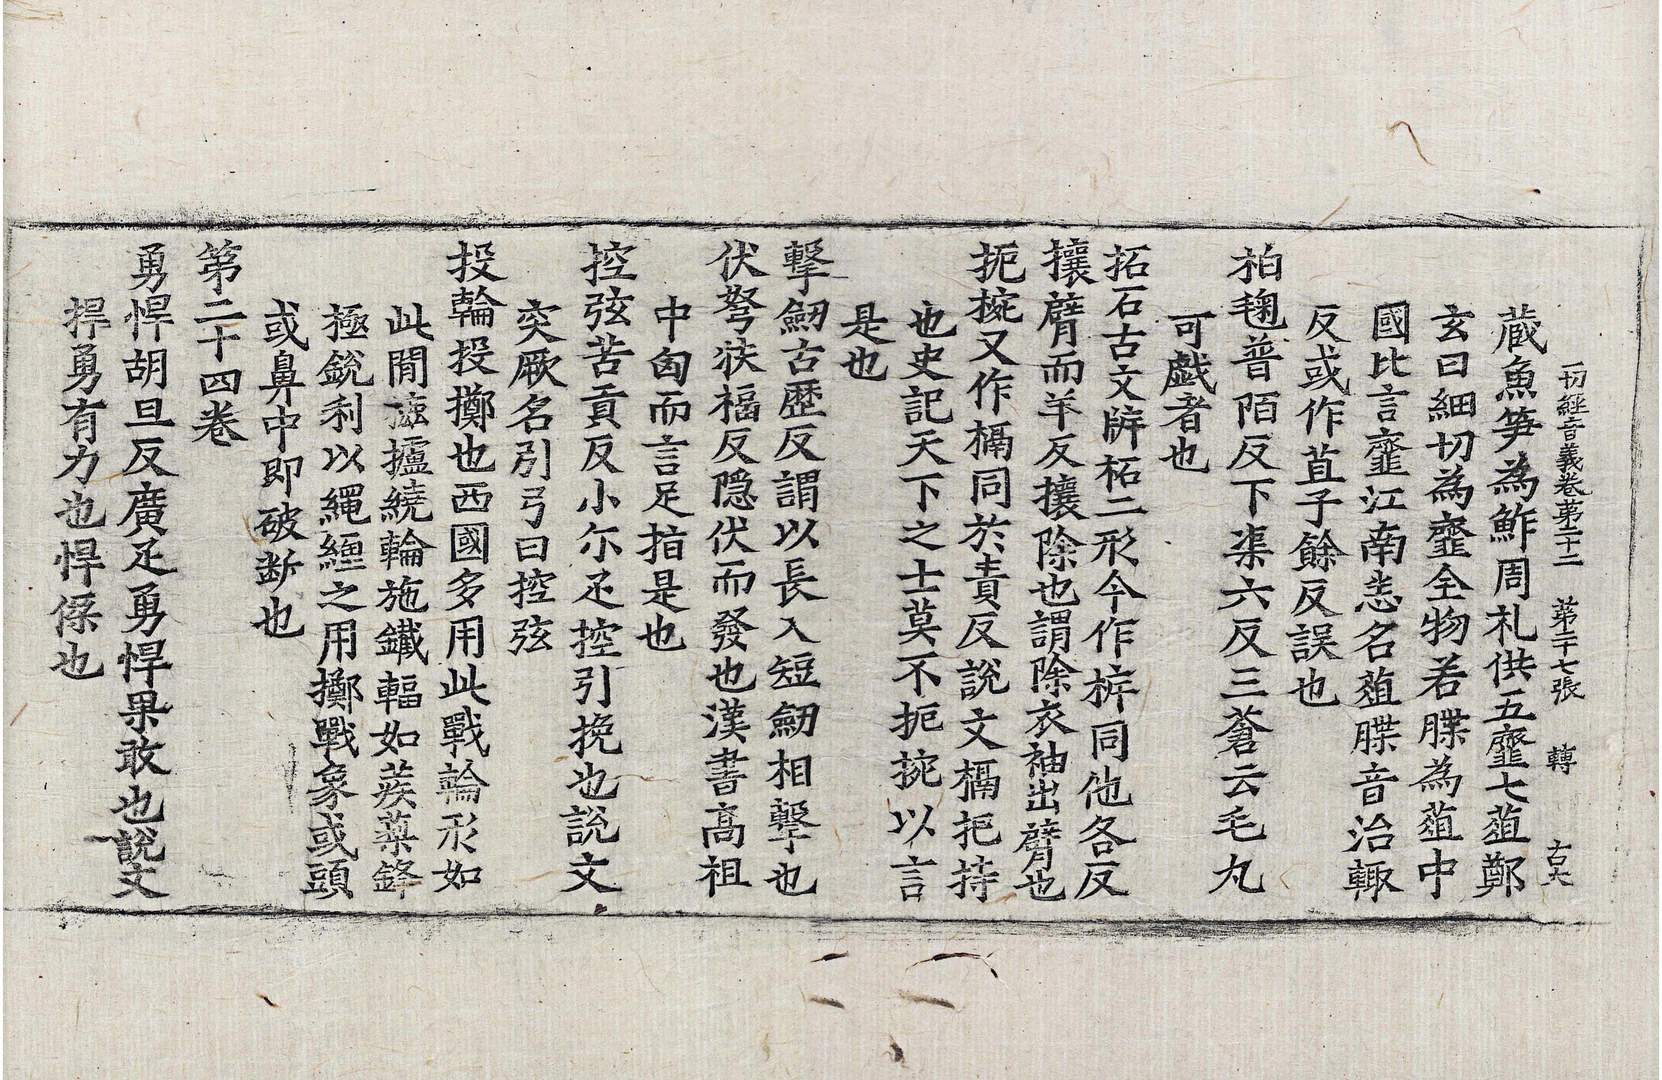 一切經音義卷第十二　第二十七張　轉
藏魚笋為鮓周礼供五虀七菹鄭
玄曰細切為虀全物若䐑為菹中
國比言虀江南悉名菹䐑音治輒
反或作苴子餘反誤也
拍毱普陌反下渠六反三蒼云毛丸
可戲者也
拓石古文𢈈柘二形今作㭒同他各反
攘臂而羊反攘除也謂除衣袖出臂也
扼捥又作搹同於責反說文搹把持
也史記天下之士莫不扼捥以言
是也
擊劒古歷反謂以長入短劒相擊也
伏弩扶福反隐伏而發也漢書高祖
中匈而言足指是也
控弦苦貢反小尒疋控引挽也說文
突厥名引弓曰控弦
投輪投擲也西國多用此戰輪形如
此閒轆轤繞輪施鐵輻如蒺䔧鋒
極銳利以繩纏之用擲戰象或頭
或鼻中即破断也
第二十四卷
勇悍胡旦反廣疋勇悍果敢也說文
捍勇有力也悍傑也